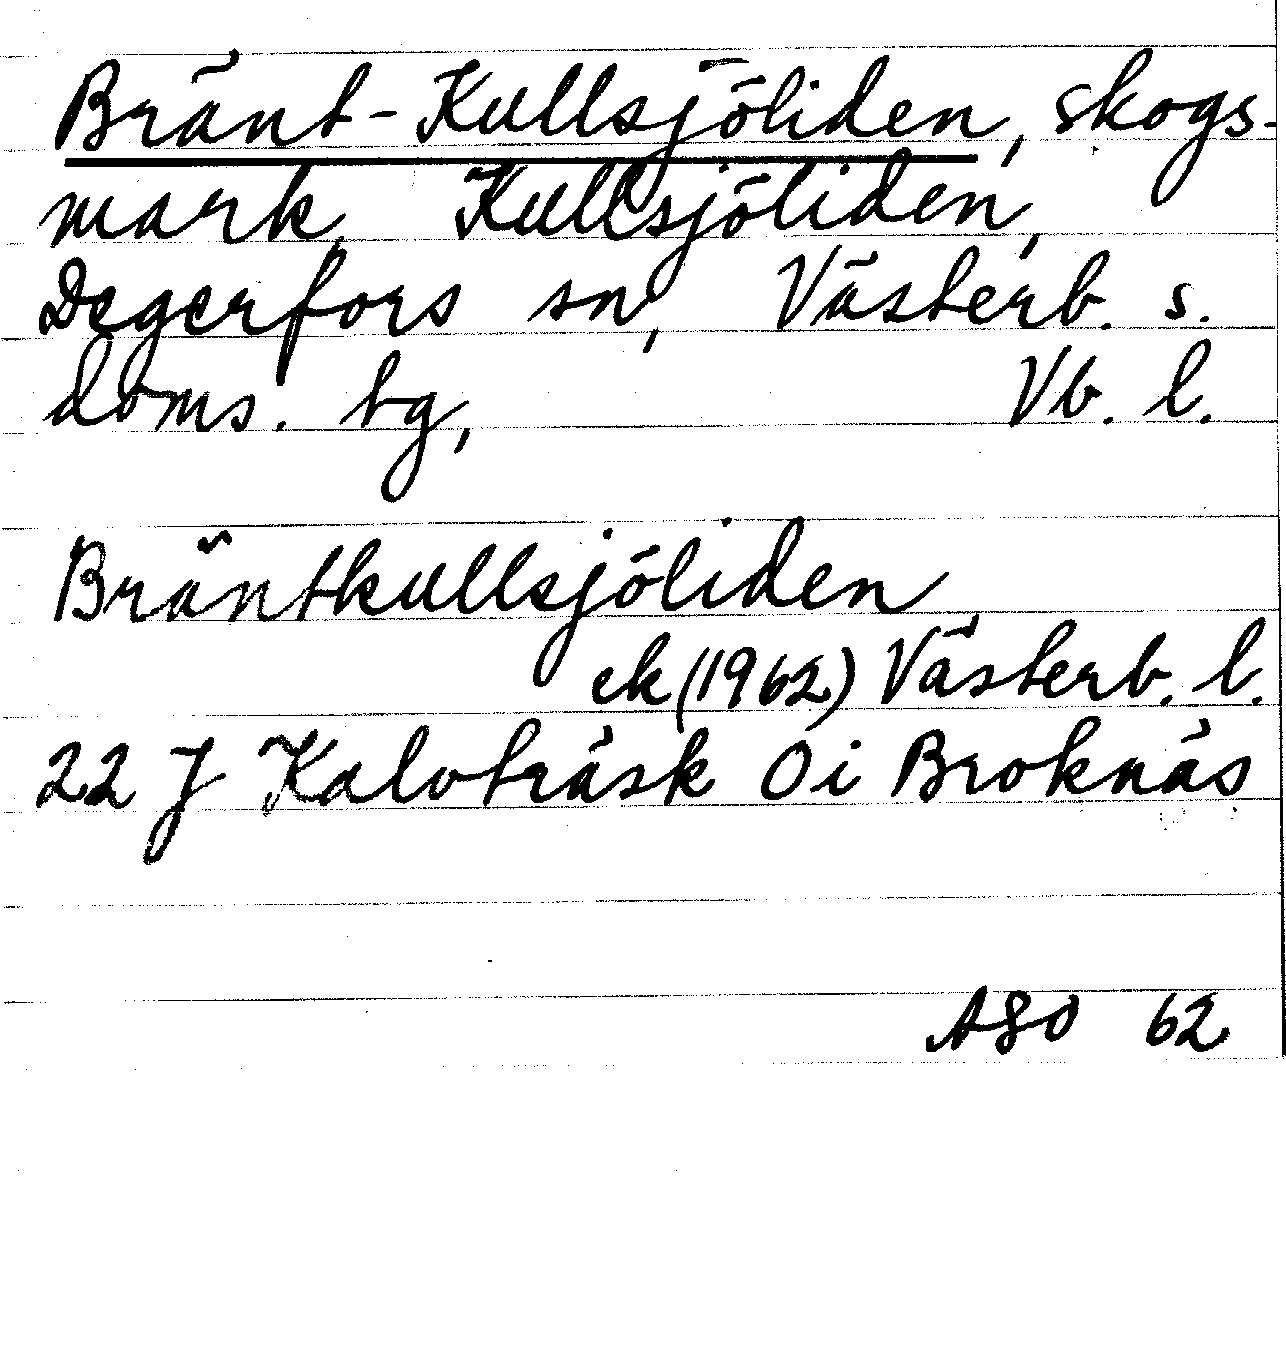 Bränt-Kullsjöliden, skogs-
mark, Kullsjöliden,
Degerfors sn, Västerb. s.
doms. tg, Vb. l.
Bräntkullsjöliden
ek (1962) Västerb. l.
22 J Kalvträsk 0 i Broknäs
ASO 62